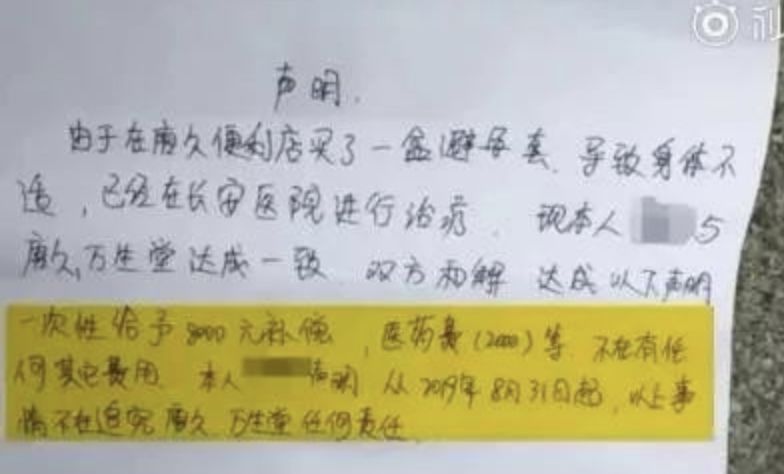 声明.
由于在唐久便利店买了一盒避孕套.导致身体不
适,已经在长安医院进行治疗. 现本人 与
唐久,万生堂达成一致. 双方和解 达成以下声明
一次性给予8000元补偿,医药费(2000)等.不在有任
何其它费用. 本人 声明 从2019年8月31日起,以上事
情不在追究唐久.万生堂任何责任.